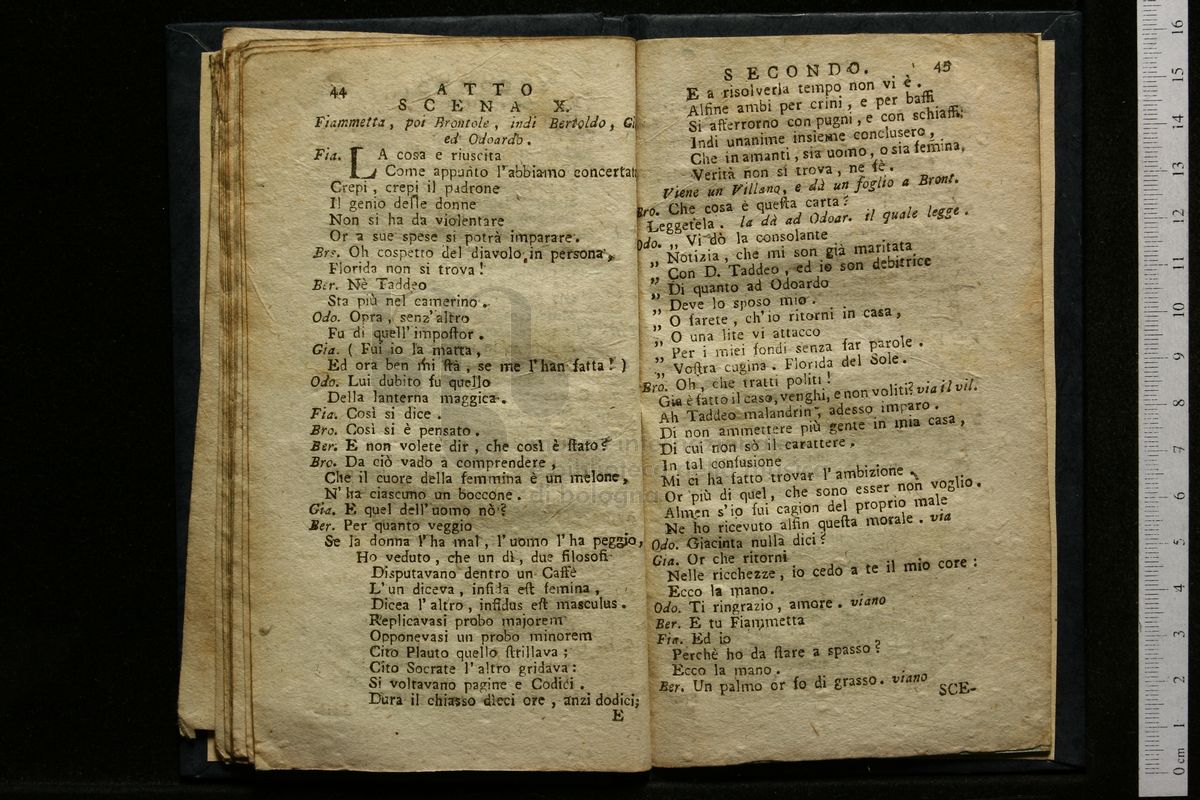 44 ATTO
SCENA X.
Fiammetta, poi Brontole, indi Bertoldo,
ed Odoardo.
Fia. LA cosa e riuscita
Come appunto l'abbiamo concertato
Crepi, crepi il padrone
Il genio delle donne
Non si ha da violentare
Or a sue spese si potrà imparare.
Bro. Oh cospetto del diavolo in persona,
Florida non si trova!
Ber. Nè Taddeo
Sta più nel camerino.
Odo. Opra, senz'altro
Fu di quell'impoſtor.
Gia. (Fui io la matta,
Ed ora ben mi ſta, se me l'han fatta!)
Odo. Lui dubito fu quello
Della lanterna maggica.
Fia. Così si dice.
Bro. Così si è pensato.
Ber. E non volete dir, che così è ſtato?
Bro. Da ciò vado a comprendere,
Che il cuore della femmina è un melone,
N'ha ciascuno un boccone.
Gia. E quel dell'uomo nò?
Ber. Per quanto veggio
Se la donna l'ha mal, l'uomo l'ha peggio,
Ho veduto, che un dì, due filosofi
Disputavano dentro un Caffè
L'un diceva, infida eſt femina,
Dicea l'altro, infidus eſt masculus.
Replicavasi probo majorem
Opponevasi un probo minorem
Cito Plauto quello ſtrillava;
Cito Socrate l'altro gridava:
Si voltavano pagine e Codici.
Dura il chiasso dieci ore, anzi dodici;
E
SECONDO. 45
E a risolverla tempo non vi è.
Alfine ambi per crini, e per baffi
Si afferrorno con pugni, e con schiaffi;
Indi unanime insieme conclusero,
Che in amanti, sia uomo, o sia femina,
Verità non si trova, ne fè.
Viene un Villano, e dà un foglio a Bront.
Bro. Che cosa è queſta carta?
Leggetela. la dà ad Odoar. il quale legge.
Odo. „ Vi dò la consolante
„ Notizia, che mi son già maritata
„ Con D. Taddeo, ed io son debitrice
„ Di quanto ad Odoardo
„ Deve lo sposo mio.
„ O farete, ch'io ritorni in casa,
„ O una lite vi attacco
„ Per i miei fondi senza far parole.
„ Voſtra cugina. Florida del Sole.
Bro. Oh, che tratti politi!
Gia è fatto il caso, venghi, e non voliti? via il vil.
Ah Taddeo malandrin, adesso imparo.
Di non ammettere più gente in mia casa,
Di cui non sò il carattere.
In tal confusione
Mi ci ha fatto trovar l'ambizione.
Or più di quel, che sono esser non voglio.
Almen s'io fui cagion del proprio male
Ne ho ricevuto alfin queſta morale. via
Odo. Giacinta nulla dici?
Gia. Or che ritorni
Nelle ricchezze, io cedo a te il mio core:
Ecco la mano.
Odo. Ti ringrazio, amore. viano
Ber. E tu Fiammetta
Fia. Ed io
Perchè ho da ſtare a spasso?
Ecco la mano.
Ber. Un palmo or fo di grasso. viano
SCE-